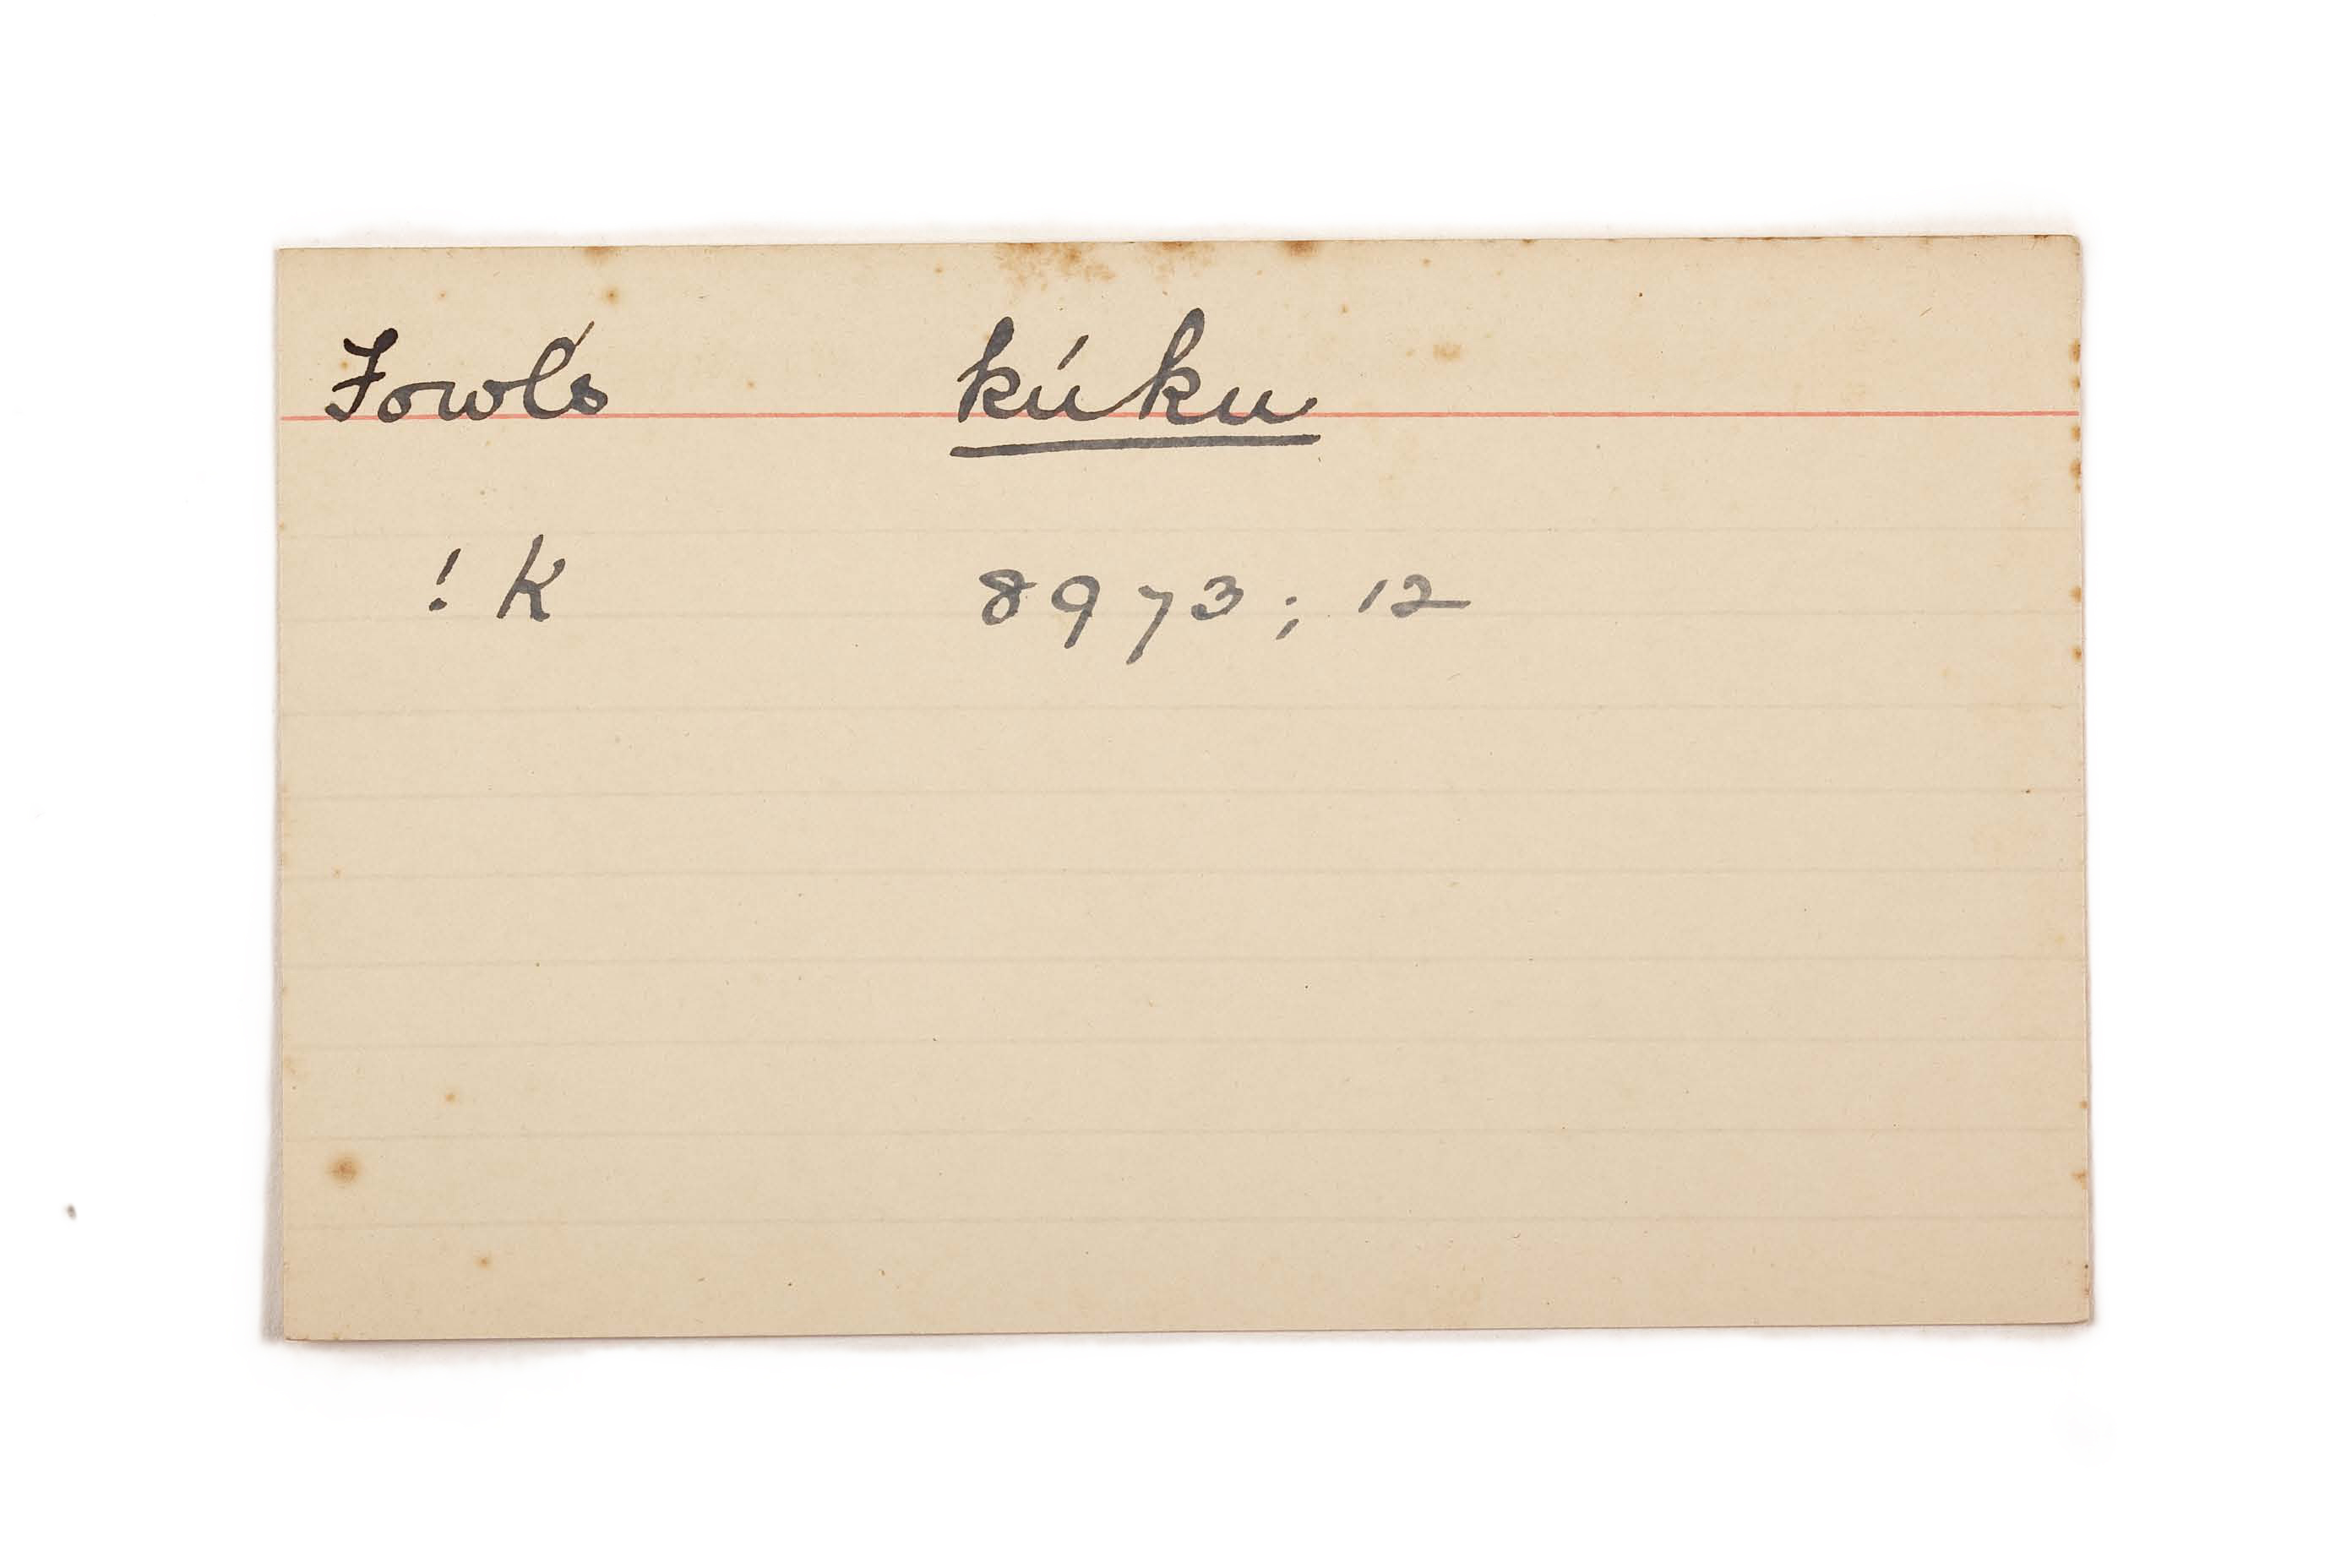 Fowls kúku
! K 8973; 12